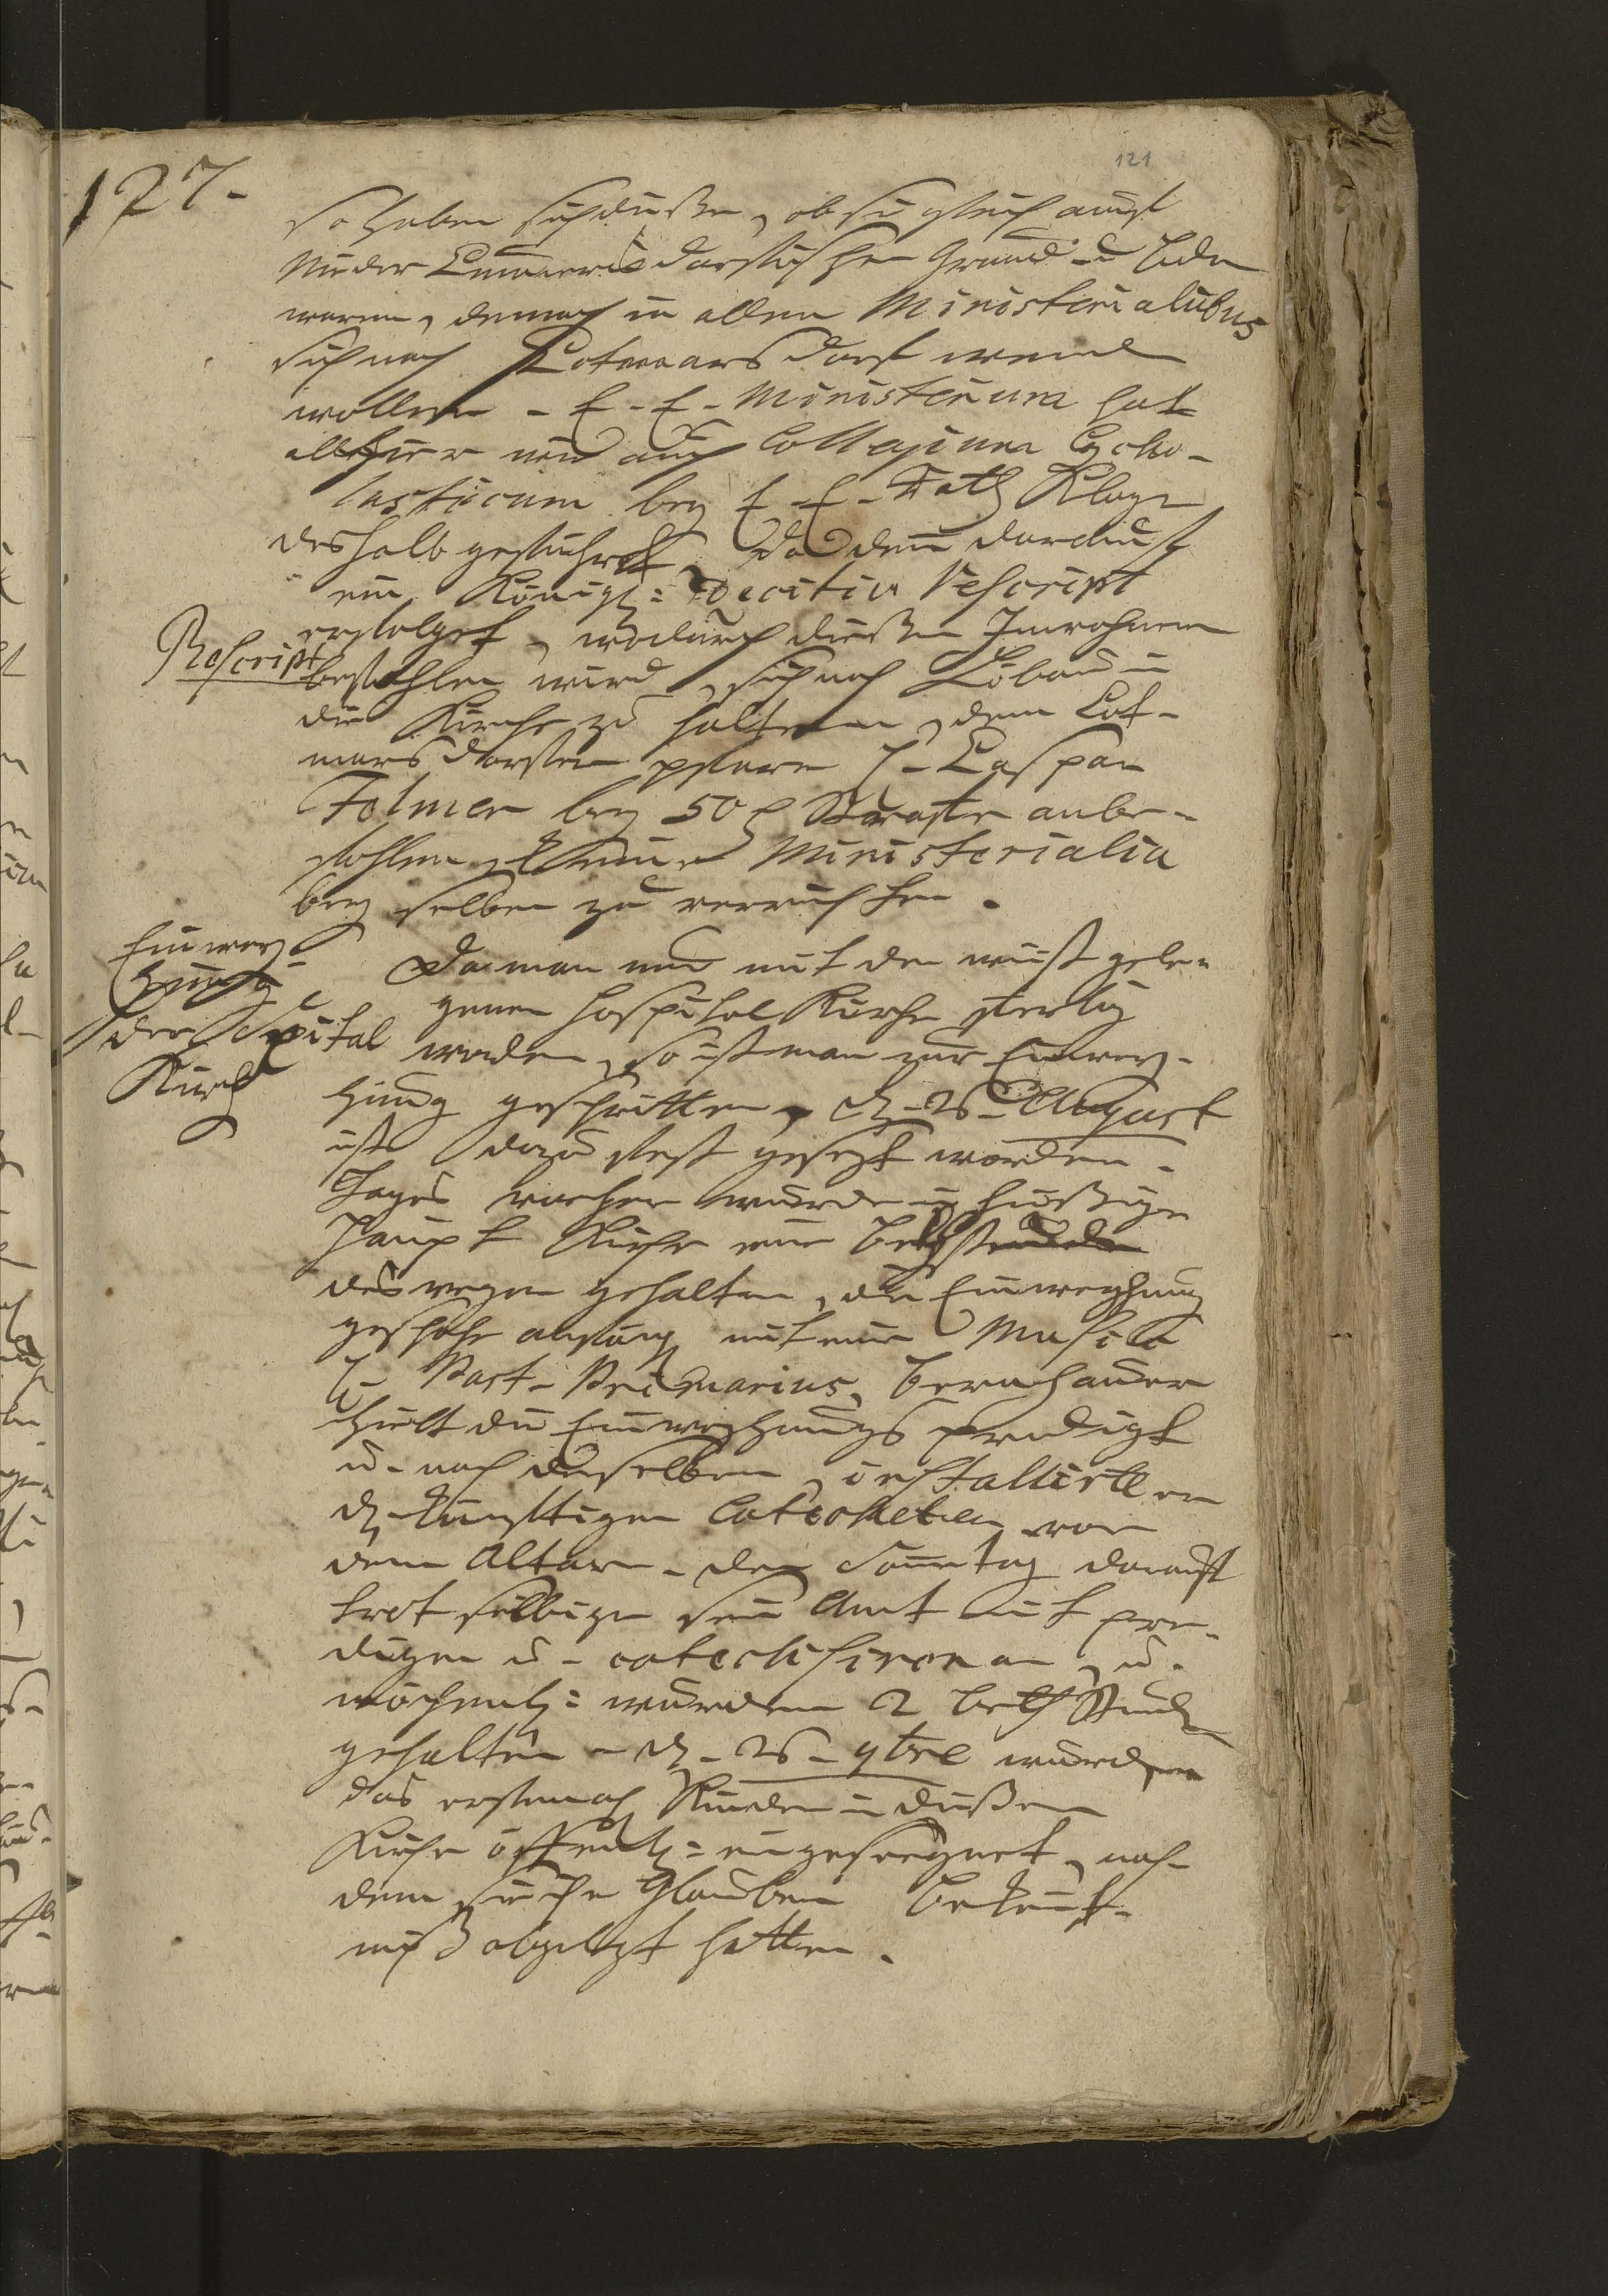 121
127.
so haben sich dieße, ob sie gleich auf
Nieder Cunnersdorfischen Grund u.
waren, dennoch in allen Ministerialibus
sich nach Cotmarsdorf wenden
wollen. E. E. Ministerium hat
allhier wie auch Collegium Scho-
lasticum bey E. E. Rath Klage
deshalb geführet, da denn darauf
ein Königl: Decisiv Rescript
Rescript
erfolget, wodurch dießen Inwohnern
befohlen wird, sich nach Löbau in
die Kirche zu halten, dem Cot-
marsdorfer Pfarr H. Caspar
Folmer bey 50 Straffe anbe-
fohlen, keine Ministerialia
bey selben zu verrichten.
Einwey-
hung
der Spital
Kirch
Da man nun mit der wüst gele-
genen Hospital Kirche fertig
worden, so ist man zur Einwey-
hung geschritten, d. 26. August
ist dazu fest gesezt worden.
Tages vorher wurde in hießiger
Haupt Kirche eine Bethstunde
deswegen gehalten, die Einweyhung
geschahe anfangs mit einer Musica
H. Past. Primarius
hielt die Einweyhungs predigt
u. nach derselben, installirte er
d. künfftigen Catecheten vor
dem Altare. Den Sonntag darauf
trat selbiger sein Amt mit pre-
digen u. catechisiren an, u.
wöchentl: wurden 2 Bethstunden
gehalten. d. 26. 9bre wurden
das erstemahl Kinder in dießer
Kirche öffentl: eingesegnet, nach-
dem sie ihr Glaubens Bekennt-
niß abgelegt hatten.